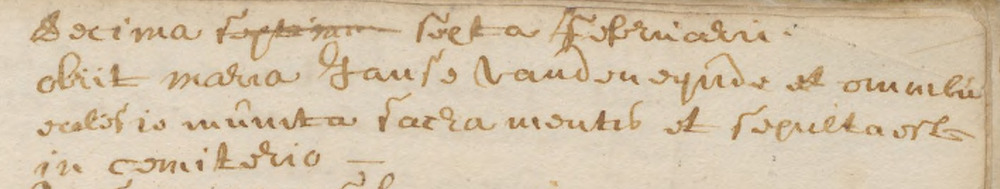 Decima septima sexta Februarii
obiit maria Janse vanden eynde et omnibus
eclesie munita sacramentis et sepulta est
in cemiterio —